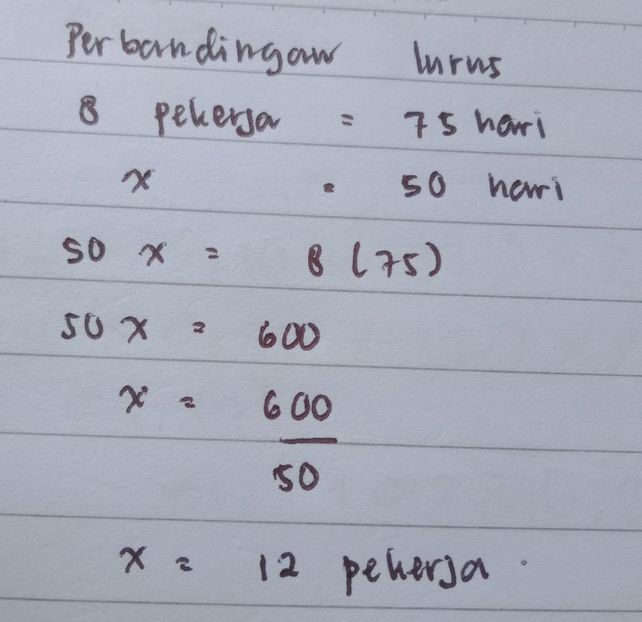 Perbandingan lurus
8 pekerja = 75 hari
x = 50 hari
50 x = 8 (75)
50 x = 600
x = 600
50
x = 12 pekerja.